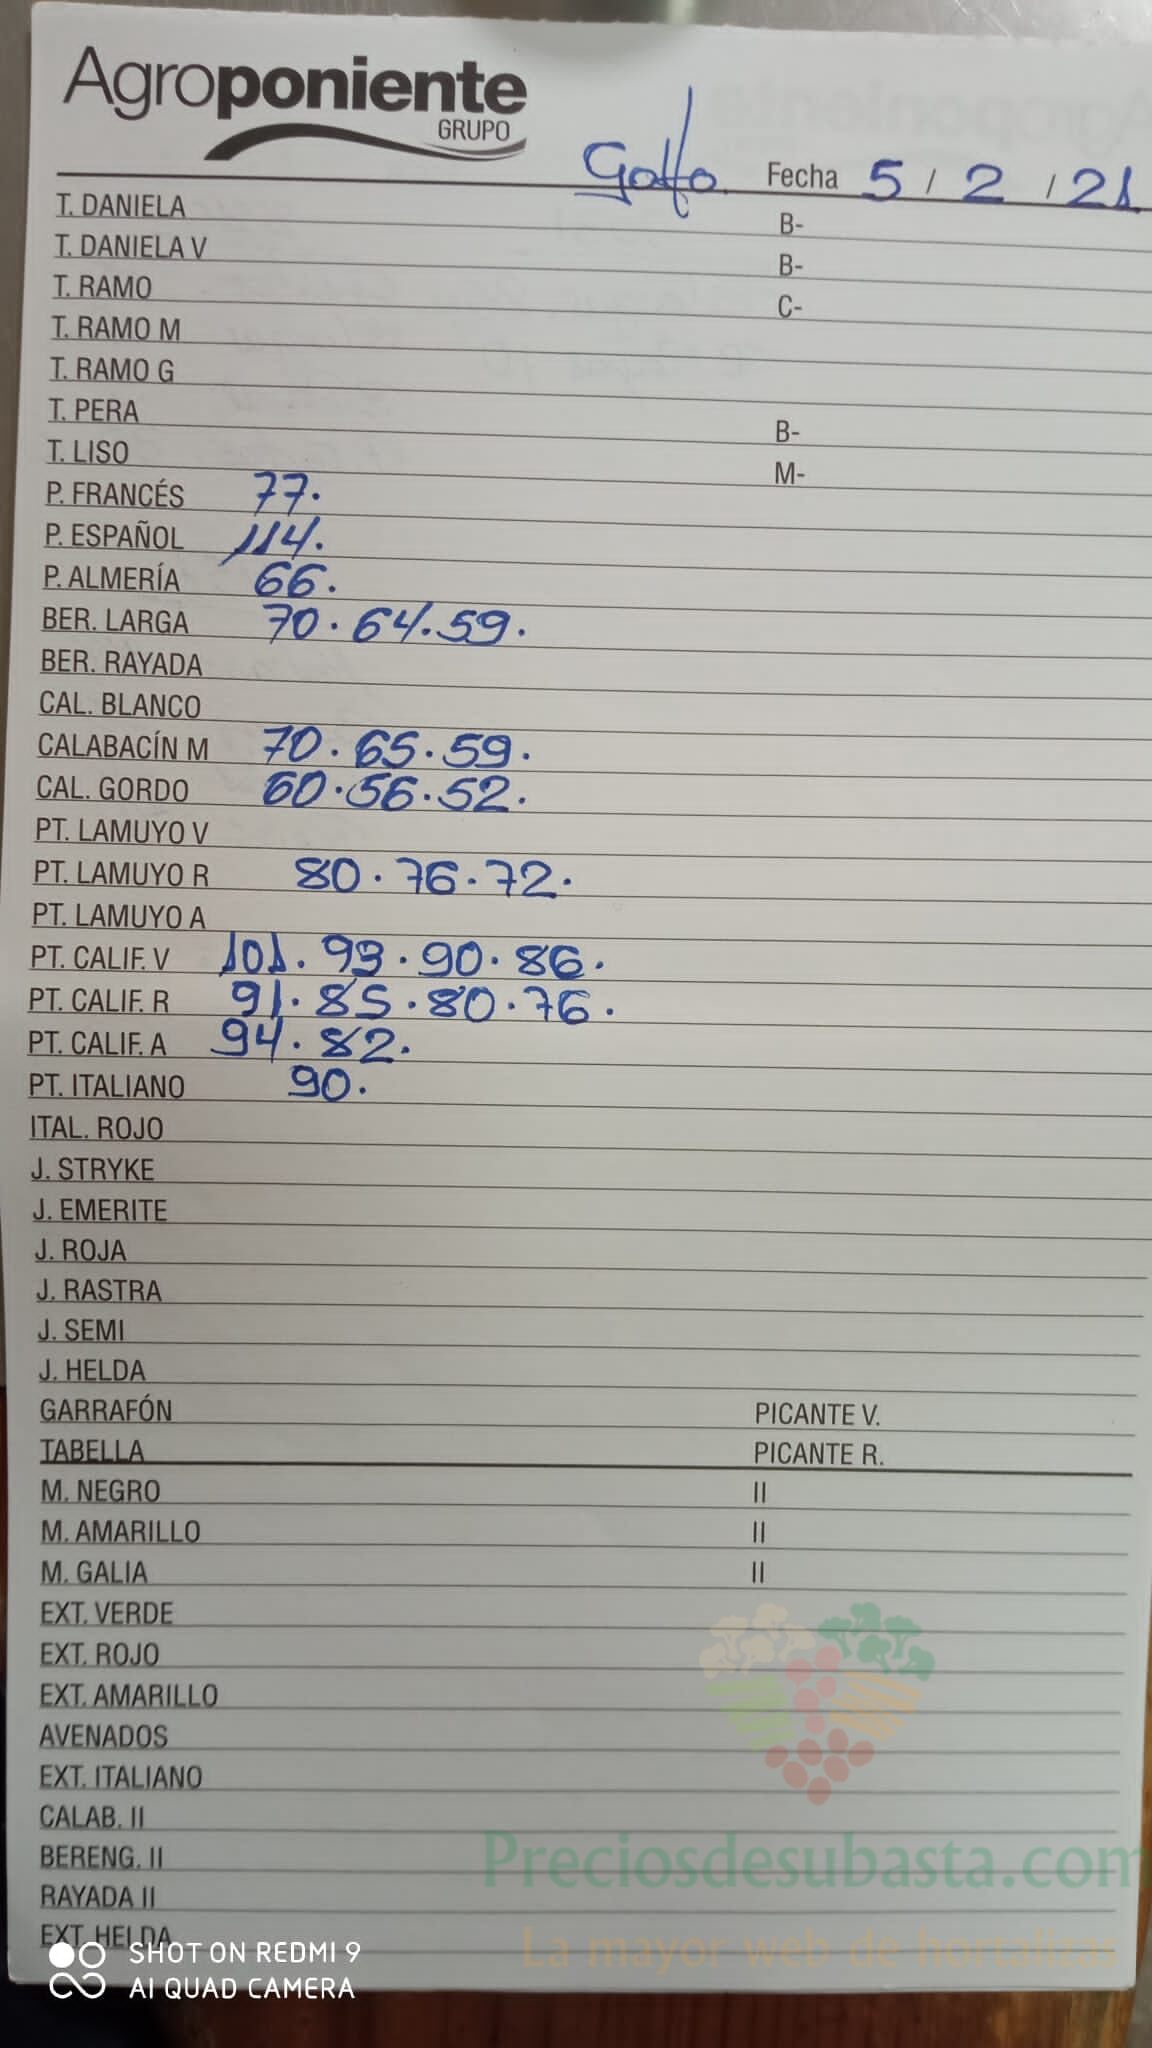 Agroponiente
GRUPO
Golfo Fecha 5 / 2 / 21
T. DANIELA B-
T. DANIELA V B-
T. RAMO C-
T. RAMO M
T. RAMO G
T. PERA B-
T. LISO M-
P. FRANCÉS 77.
P. ESPAÑOL 114.
P. ALMERÍA 66.
BER. LARGA 70. 64. 59.
BER. RAYADA
CAL. BLANCO
CALABACÍN M 70. 65. 59.
CAL. GORDO 60. 56. 52.
PT. LAMUYO V
PT. LAMUYO R 80. 76. 72.
PT. LAMUYO A
PT. CALIF. V 101. 93. 90. 86.
PT. CALIF. R 91. 85. 80. 76.
PT. CALIF. A 94. 82.
PT. ITALIANO 90.
ITAL. ROJO
J. STRYKE
J. EMERITE
J. ROJA
J. RASTRA
J. SEMI
J. HELDA
GARRAFÓN PICANTE V.
TABELLA PICANTE R.
M. NEGRO II
M. AMARILLO II
M. GALIA II
EXT. VERDE
EXT. ROJO
EXT. AMARILLO
AVENADOS
EXT. ITALIANO
CALAB. II
BERENG. II
Preciosdesubasta.com
RAYADA II
EXT. HELDA
La mayor web de hortalizas
SHOT ON REDMI 9
AI QUAD CAMERA